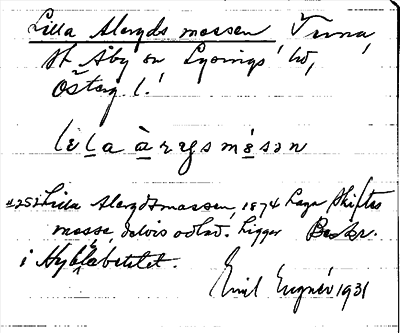 Lilla Alergds mossen Tvrna,
St Åby sn Lysings' hd,
Österg l.
lila àregsmósan
#252 Lilla Alergdsmossen, 1874 Laga Skiftes
mosse, delvis odlad. Ligger Beskr.
i Hyblabetet.
Emil Eugnér 1931